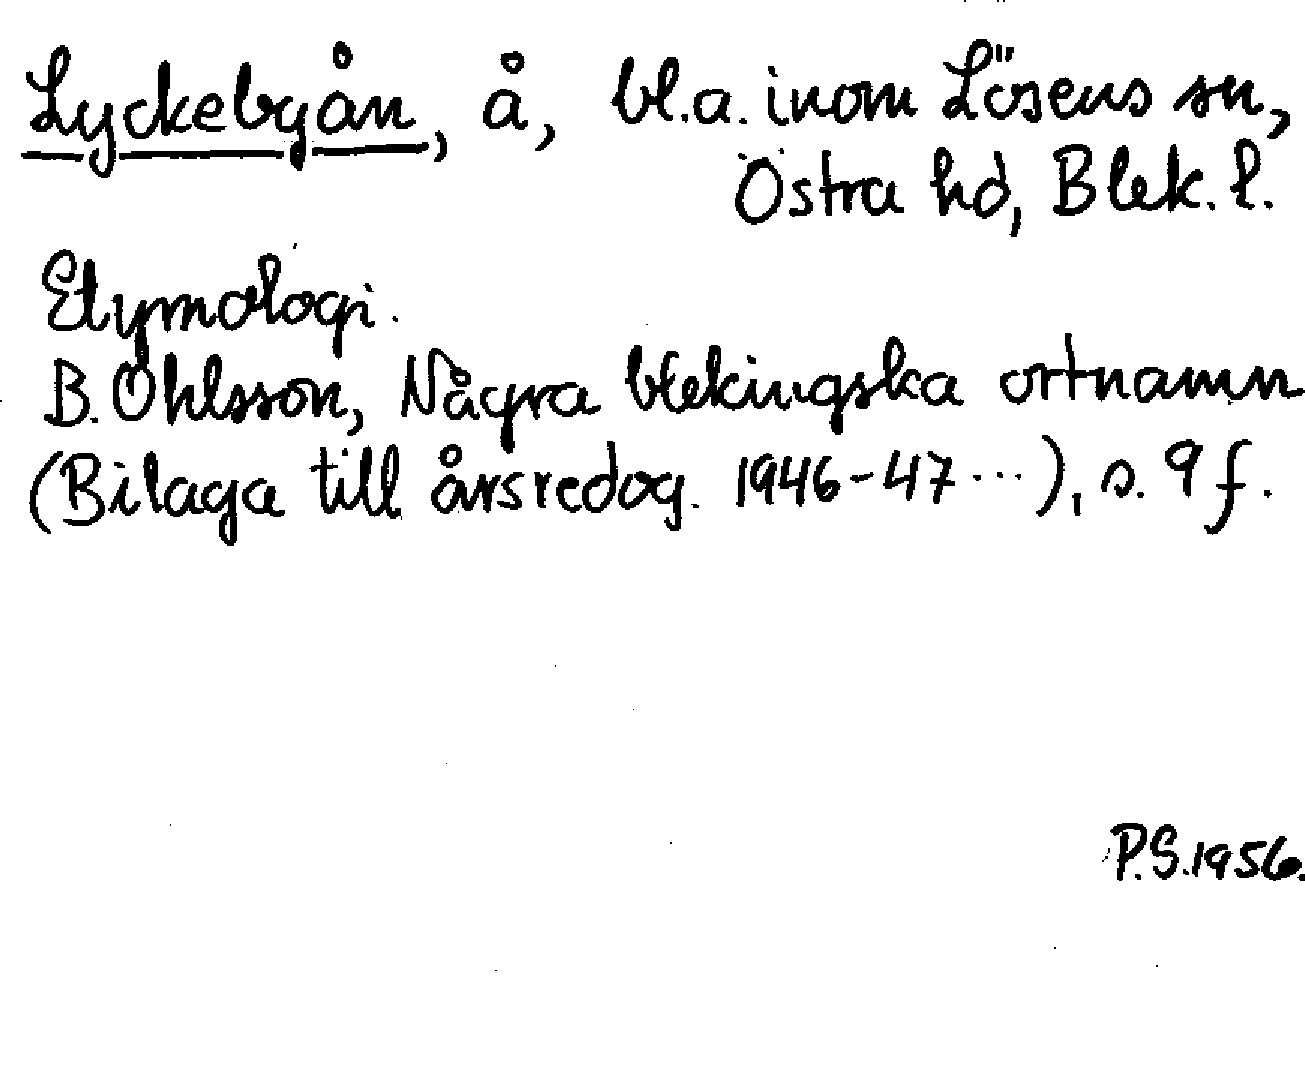 Lyckebyån, å, bl.a. inom Lösens sn,
Östra hd, Blek. l.
Etymologi.
B. Ohlsson, Några blekingska ortnamn
(Bilaga till årsredog. 1946-47...), s. 9 f.
P.S. 1956.